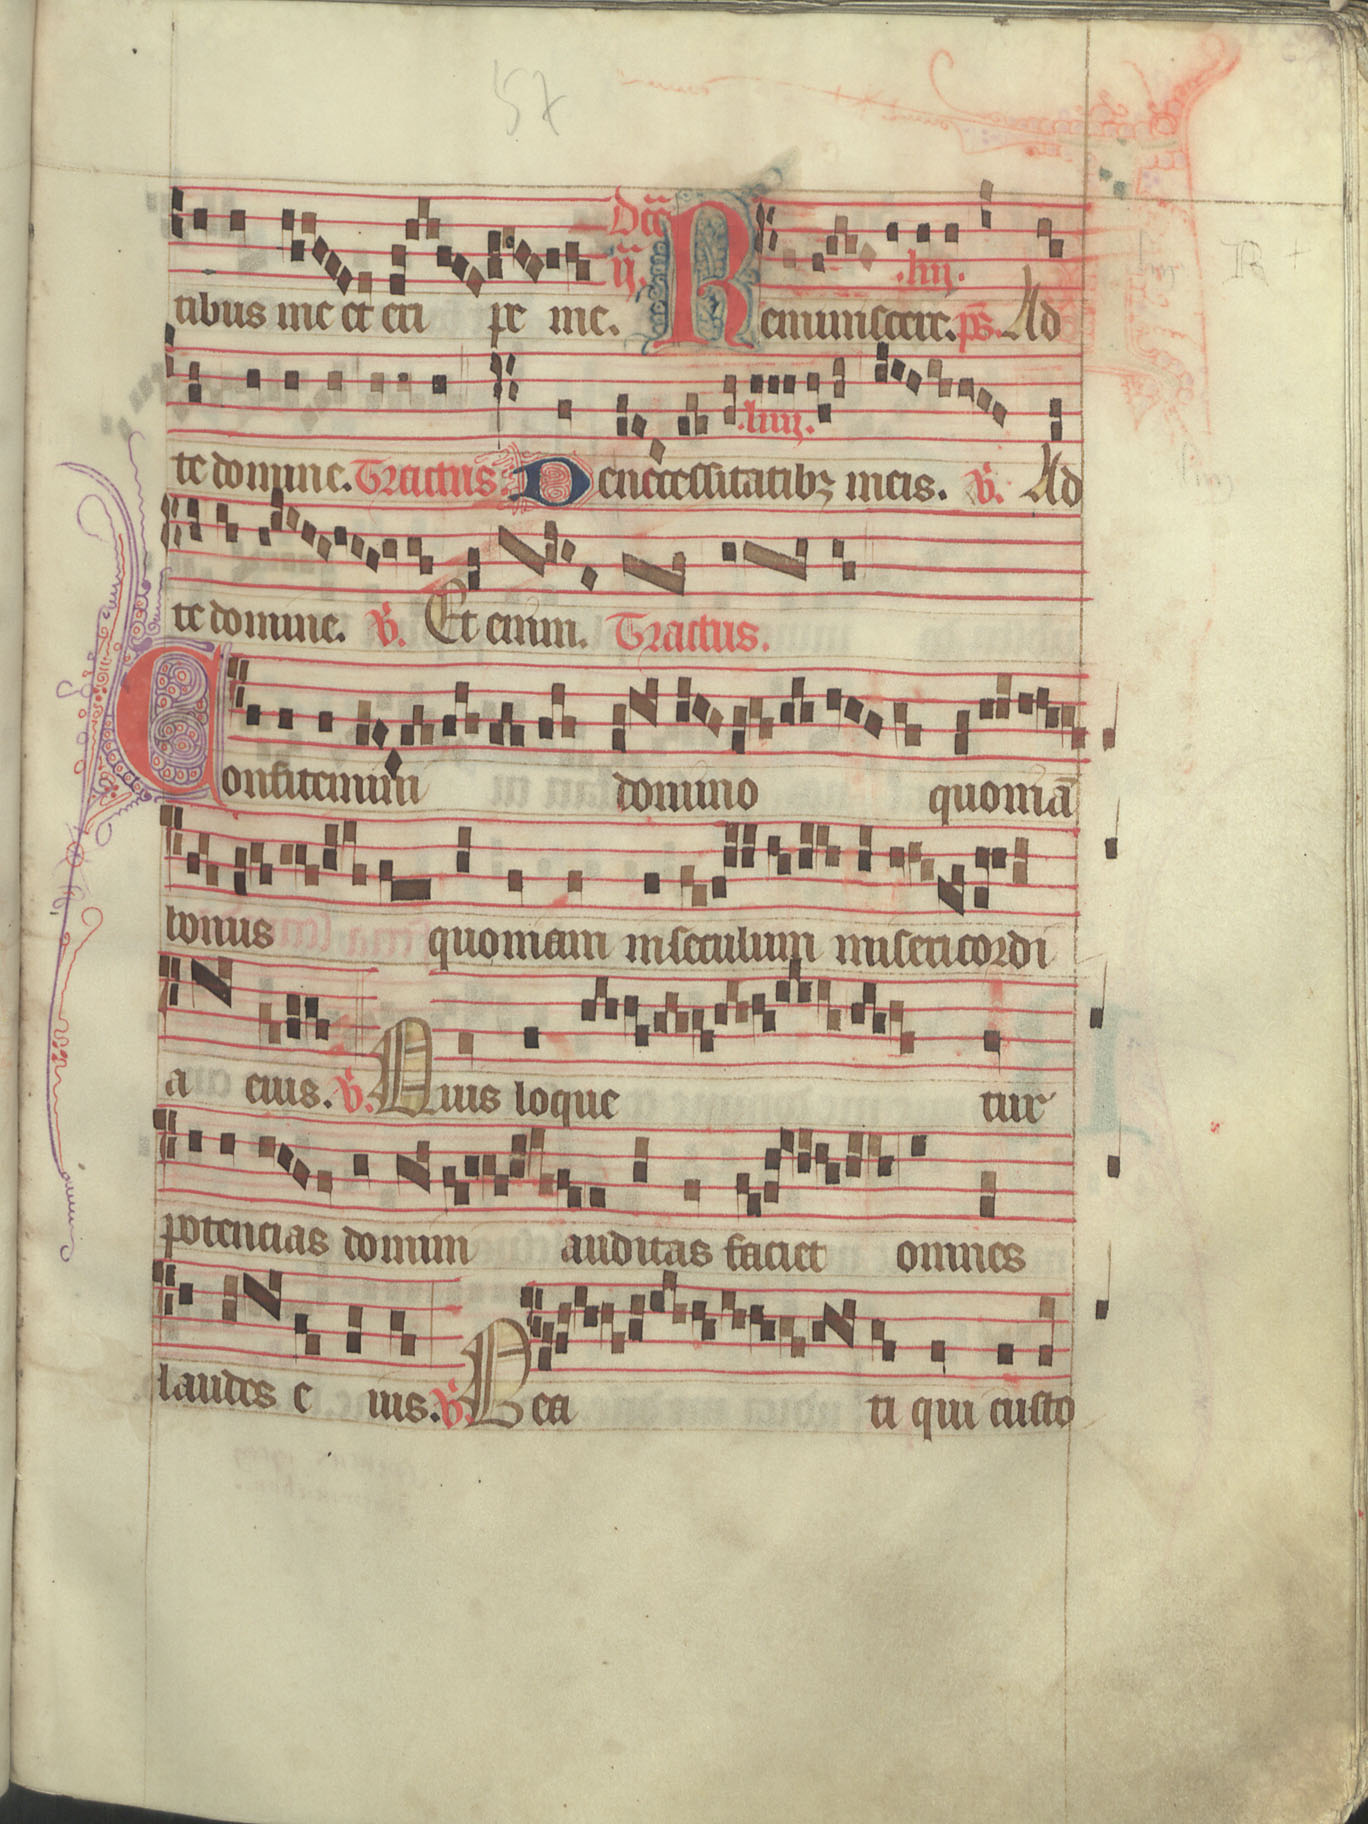 57
tibus me et eri pe me. Dcca ij. Reminiscere. .liiij. ps. Ad
te domine. Tractus. De necessitatibꝫ meis. .liiij. V. Ad
te domine. V. Et enim. Tractus.
Confitemini domino quoniā
bonus quoniam in seculum misericordi
a eius. V. Quis loque tur
potencias domini auditas faciet omnes
laudes e ius. V. Bea ti qui custo